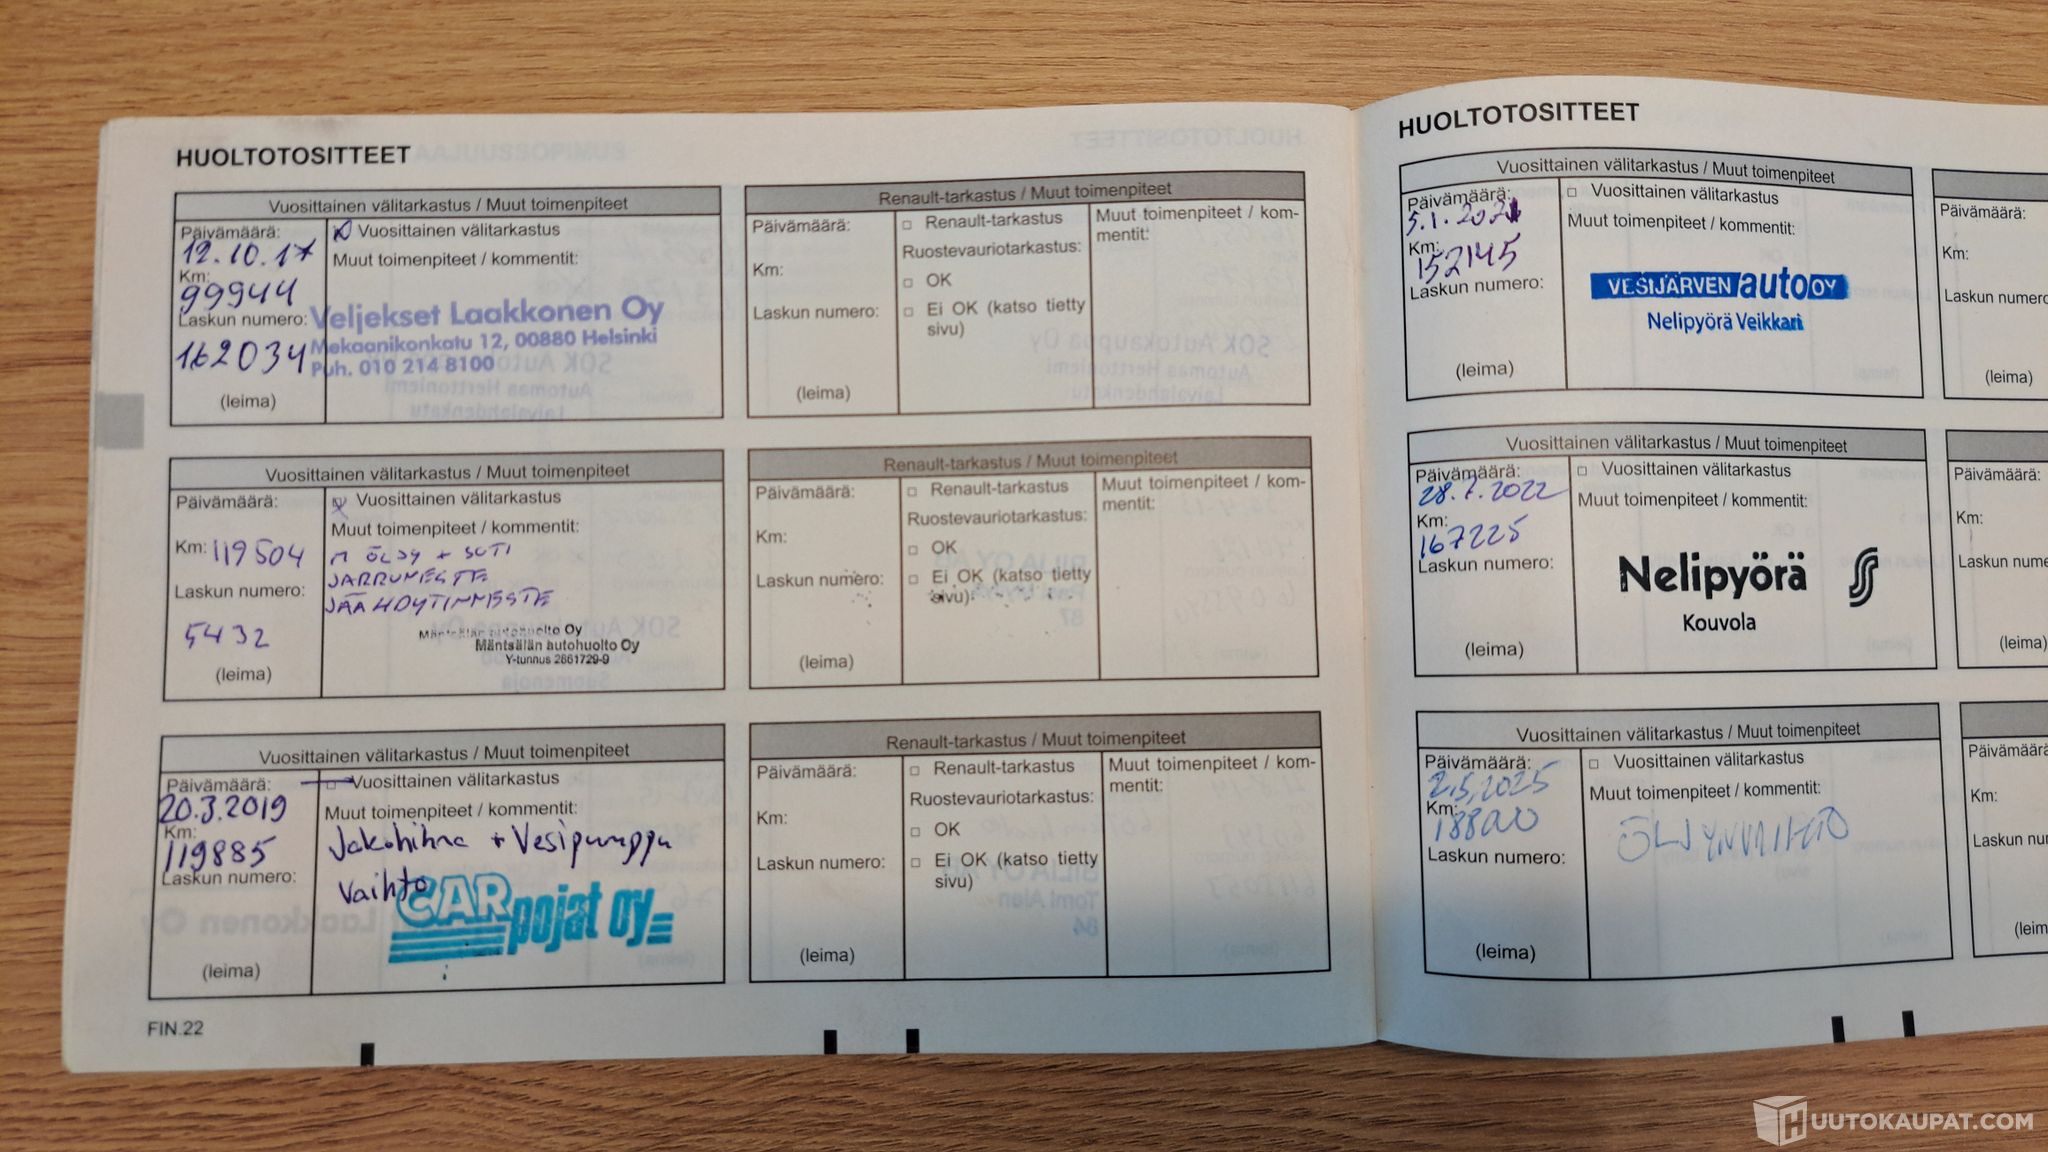 HUOLTOTOSITTEET
Vuosittainen välitarkastus / Muut toimenpiteet
Päivämäärä:
12.10.17
Km:
99944
Laskun numero:
162034
(leima)
Vuosittainen välitarkastus
Muut toimenpiteet / kommentit:
Veljekset Laakkonen Oy
Mekaanikonkatu 12, 00880 Helsinki
Puh. 010 214 8100
Renault-tarkastus / Muut toimenpiteet
Päivämäärä:
Km:
Laskun numero:
(leima)
Renault-tarkastus
Ruostevauriotarkastus:
OK
Ei OK (katso tietty
sivu)
Muut toimenpiteet / kom-
mentit:
Vuosittainen välitarkastus / Muut toimenpiteet
Päivämäärä:
Km: 119504
Laskun numero:
5432
(leima)
Vuosittainen välitarkastus
Muut toimenpiteet / kommentit:
M ÖLJY + SUTI
JARRUNESTE
JÄÄHDYTINNESTE
Mäntsälän autohuolto Oy
Mäntsälän autohuolto Oy
Y-tunnus 2661729-9
Renault-tarkastus / Muut toimenpiteet
Päivämäärä:
Km:
Laskun numero:
(leima)
Renault-tarkastus
Ruostevauriotarkastus:
OK
Ei OK (katso tietty
sivu)
Muut toimenpiteet / kom-
mentit:
Vuosittainen välitarkastus / Muut toimenpiteet
Päivämäärä:
20.3.2019
Km:
119885
Laskun numero:
(leima)
Vuosittainen välitarkastus
Muut toimenpiteet / kommentit:
Jakohihna + Vesipumppu
Vaihto
CAR pojat oy
Renault-tarkastus / Muut toimenpiteet
Päivämäärä:
Km:
Laskun numero:
(leima)
Renault-tarkastus
Ruostevauriotarkastus:
OK
Ei OK (katso tietty
sivu)
Muut toimenpiteet / kom-
mentit:
FIN.22
HUOLTOTOSITTEET
Vuosittainen välitarkastus / Muut toimenpiteet
Päivämäärä:
5.1.2021
Km:
152145
Laskun numero:
(leima)
Vuosittainen välitarkastus
Muut toimenpiteet / kommentit:
VESIJÄRVEN auto OY
Nelipyörä Veikkari
Päivämäärä:
Km:
Laskun numero
(leima)
Vuosittainen välitarkastus / Muut toimenpiteet
Päivämäärä:
28.7.2022
Km:
167225
Laskun numero:
(leima)
Vuosittainen välitarkastus
Muut toimenpiteet / kommentit:
Nelipyörä
Kouvola
Päivämäärä:
Km:
Laskun nume
(leima)
Vuosittainen välitarkastus / Muut toimenpiteet
Päivämäärä:
2.5.2025
Km:
188200
Laskun numero:
(leima)
Vuosittainen välitarkastus
Muut toimenpiteet / kommentit:
ÖLJYNVAIHTO
Päivämäärä
Km:
Laskun nume
(leim
HUUTOKAUPAT.COM